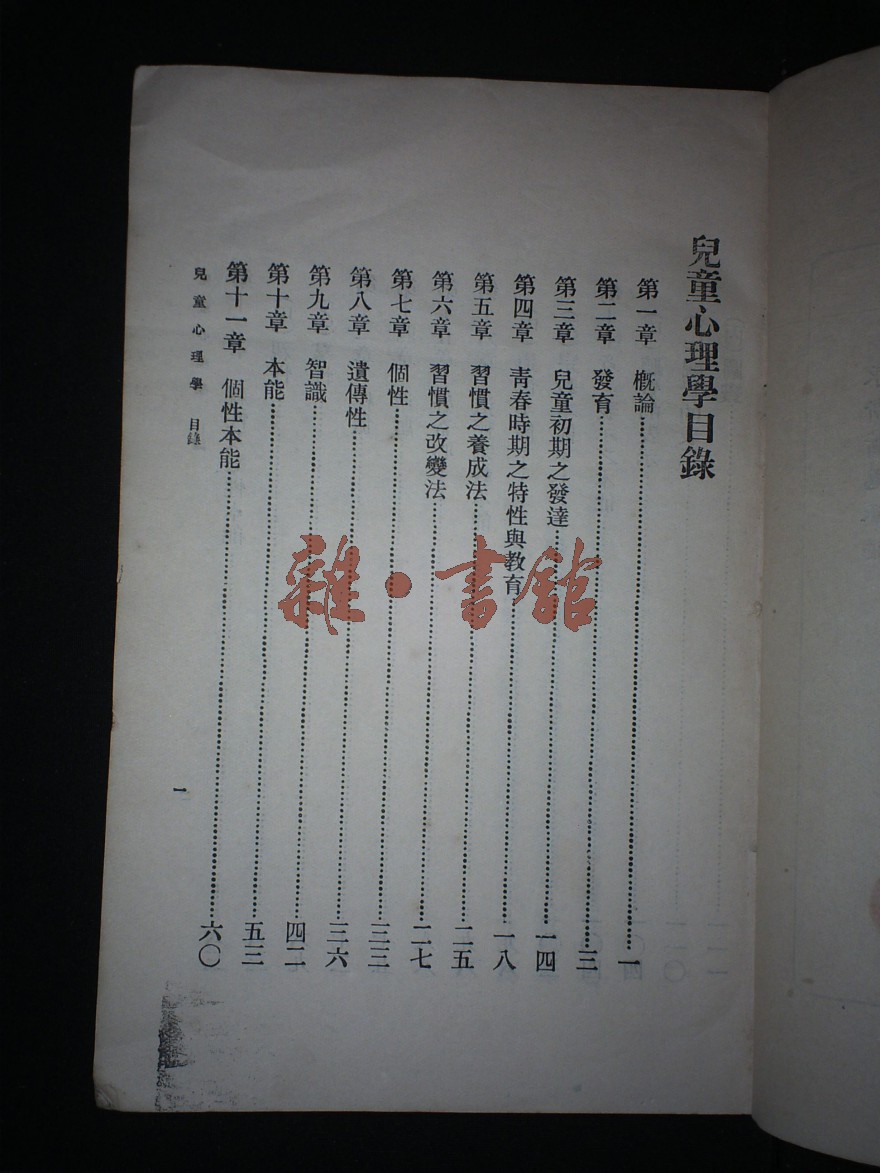 兒童心理學目錄
第一章　概論…………一
第二章　發育…………三
第三章　兒童初期之發達…………一四
第四章　青春時期之特性與教育…………一八
第五章　習慣之養成法…………二五
第六章　習慣之改變法…………二七
第七章　個性…………三三
第八章　遺傳性…………三六
第九章　智識…………四二
第十章　本能…………五三
第十一章　個性本能…………六〇
兒童心理學　目錄
一
雜·書館